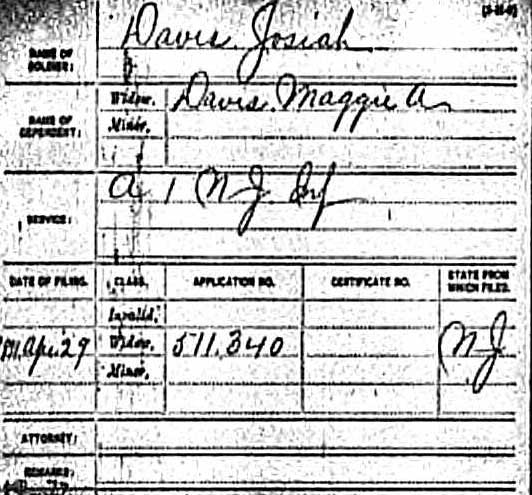 Davis, Josiah
NAME OF SOLDIER:
NAME OF DEPENDENT:
Widow, Davis, Maggie A.
Minor,
SERVICE:
A 1 N J Inf
DATE OF FILING. CLASS. APPLICATION NO. CERTIFICATE NO. STATE FROM WHICH FILED.
Invalid,
Apr. 29 Widow, 511.340 N J
Minor,
ATTORNEY:
REMARKS: